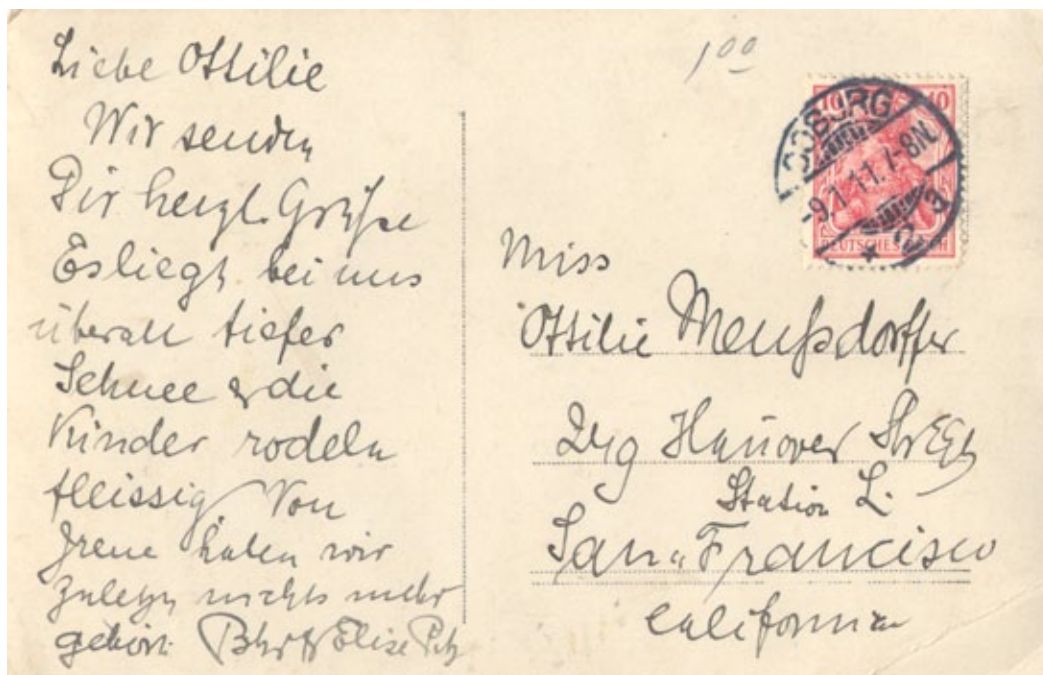 Liebe Ottilie
Wir senden
Dir herzl. Grüße
Es liegt bei uns
überall tiefer
Schnee & die
Kinder rodeln
fleissig Von
Irene haben wir
zuletzt nichts mehr
gehört. & Elise
1 00
10 10
COBURG
-9.1.11.7-8N.
* 2
DEUTSCHES REICH
Miss
Ottilie Meußdorffer
Hanover
Station L.
San Francisco
California